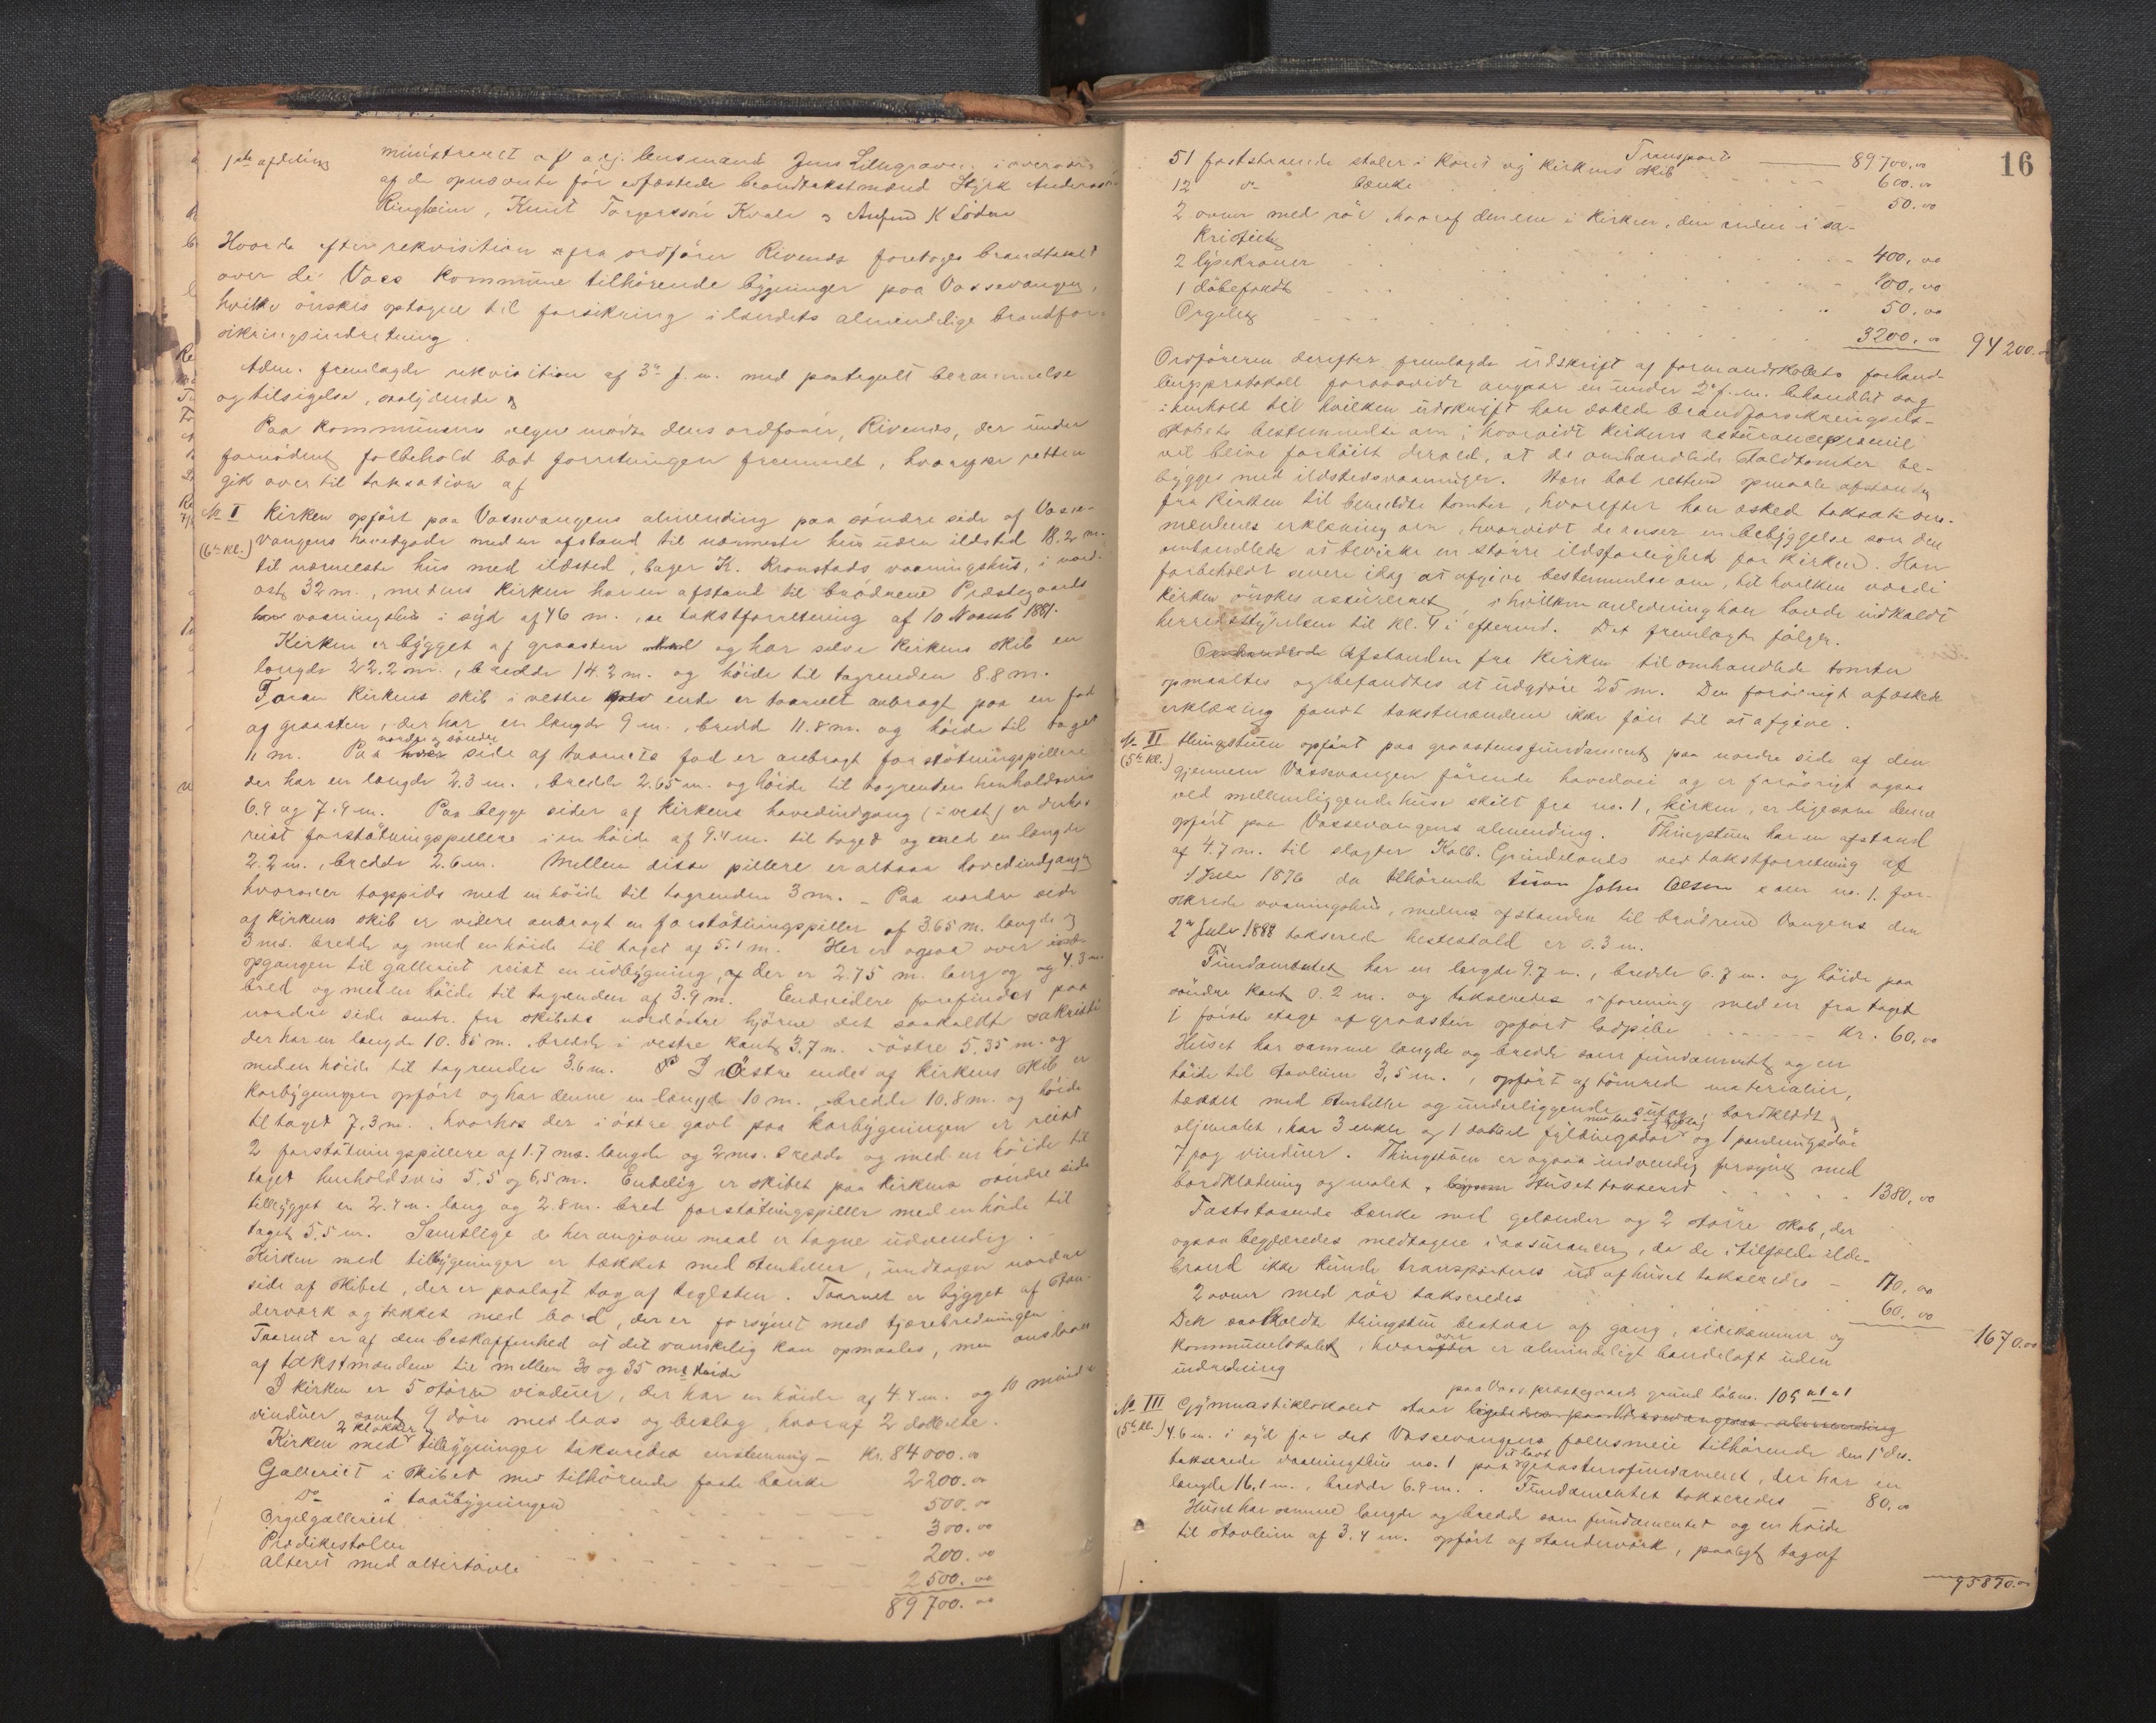 1ste afdeling
ministreret af adj. lensmand Jens Lithgraven i overvær
af de opnævnte før edfæstede brandtakstmænd Styrk Anderson
Ringheim, Knut Torgersson Kvale og Anfind K Løden
Hvorda efter rekvisition fra ordfører Rivenes foretoges brandtakst
over de Voss kommune tilhørende bygninger paa Vossevangen,
hvilke ønskes optagne til forsikring i landets almindelige brandfor-
sikringsindretning.
Adm. fremlagde rekvisition af 3de f. m. med paategnet berammelse
og tilsigelse, saalydende
Paa kommunens vegne mødte dens ordfører, Rivenes, der under
fornødent forbehold bad forretningen fremmet, hvorefter retten
gik over til taksation af
No I Kirken opført paa Vossevangens almending paa søndre side af Vosse-
(6te Kl.) vangens hovedgade med en afstand til nærmeste hus uden ildsted 18.2 m.
til nærmeste hus med ildsted, bager K. Kronstads vaaningshus, i nord-
ost, 32 m., medens kirken har en afstand til brødrene Præstegaards
vaaningshus i syd af 46 m., se takstforretning af 10 Novemb 1881.
Kirken er bygget af graasten og har selve kirkens skib en
længde 22.2 m., bredde 14.2 m. og høide til tagrenden 8.8 m.
Foran kirkens skib i vestre ende er taarnet anbragt paa en fod
af graasten, der har en længde 9 m., bredd 11.8 m. og høide til taget
11 m. Paa nordre og søndre side af taarnets fod er anbragt forstøtningspillere
der har en længde 2.3 m., bredde 2.65 m. og høide til tagrenden henholdsvis
6.9 og 7.9 m. Paa begge sider af kirkens hovedindgang (i vest) er derhos
reist forstøtningspillere i en høide af 9.4 m. til taget og med en længde
2.2 m., bredde 2.6 m. Mellem disse pillere er altsaa hovedindgangen
hvorover tagspids med en høide til tagrenden 3 m. – Paa nordre side
af kirkens skib er videre anbragt en forstøtningspiller af 3.65 m. længde og
3 ms. bredde og med en høide til taget af 5.1 m. Her er ogsaa over
opgangen til galleriet reist en udbygning, af der er 2.75 m. lang og og 4.3 m.
bred og med en høide til tagrenden af 3.9 m. Endvidere forefindes paa
nordre side omtr. fra skibets nordøstre hjørne det saakaldte sakristi
der har en længde 10.85 m., bredde i vestre kant 3.7 m. i østre 5.35 m. og
med en høide til tagrenden 3.6 m. I østre ende af kirkens skib er
korbygningen opført og har denne en længde 10 m., bredde 10.8 m. og høide
til taget 7.3 m., hvorhos der i østre gavl paa korbygningen er reist
2 forstøtningspillere af 1.7 ms. længde og 2 ms. bredde og med en høide til
taget henholdsvis 5.5 og 6.5 m. Endelig er skibet paa kirkens søndre side
tilbygget en 2.4 m. lang og 2.8 m. bred forstøtningspiller med en høide til
taget 5.5 m. Samtlige de her angivne maal er tagne udvendig.
Kirken med tilbygninger er tækket med stenheller, undtagen nordre
side af skibet, der er paalagt tag af teglsten. Taarnet er bygget af stan-
derværk og tækket med bord, der er forsynet med tjærebredningen.
Taarnet er af den beskaffenhed at det vanskelig kan opmaales, men anslaaes
af takstmændene til mellem 30 og 35 ms høide
I kirken er 5 større vinduer, der har en høide af 4.4 m. og 10 mindre
vinduer samt 9 døre med laas og beslag, hvoraf 2 dobbelte.
Kirken med 2 klokker tilbygninger takseredes enstemmig – Kr. 84000.00
Galleriet i skibet med tilhørende faste bænke 2200.00
Do i taarnbygningen 500.00
Orgelgalleriet 300.00
Prædikestolen 200.00
Alteret med altertavle 2500.00
89700.00
16
Transport 89700.00
51 faststaaende stoler i koret og kirkens skib 600.00
12 do bænke 50.00
2 ovner med rør, hvoraf den ene i kirken, den anden i sa-
kristiet 400.00
2 lysekroner 100.00
1 døbefondt 50.00
Orgelet 3200.00 94200.00
Ordføreren derefter fremlagde udskrift af formandskabets forhand-
lingsprotokoll forsaavidt angaar en under 2de f. m. behandlet sag
i henhold til hvilken udskrift han æskede brandforsikringssel-
skabets bestemmelse om, hvorvidt kirkens assurancepremie
vil blive forhøiet derved, at de omhandlede staldtomter be-
bygges med ildstedsvaaninger. Han bad retten opmaale afstanden
fra kirken til benævnte tomter, hvorefter han æsked taksations-
mændenes erklæring om, hvorvidt de anser en bebyggelse som den
omhandlede at bevirke en større ildsfarlighed for kirken. Han
forbeholdt senere idag at afgive bestemmelse om, til hvilken værdi
kirken ønskes assureret, i hvilken anledning han havde indkaldt
herredsstyrelsen til kl. 4 i efterm. Det fremlagte følger.
Afstanden fra kirken til omhandlede tomter
opmaaltes og befandtes at udgjøre 25 m. Den forøvrigt afæskede
erklæring fandt takstmændene ikke før til at afgive.
No II Thingstuen opført paa graastensfundament, paa nordre side af den
(5te Kl.) gjennem Vossevangen førende hovedvei og er forøvrigt ogsaa
ved mellemliggende huse skilt fra no. 1, kirken, er ligesom denne
opført paa Vossevangens almending. Thingstuen har en afstand
af 4.7 m. til slagter Kolb. Grindelands ved takstforretning af
1 Juli 1876 da tilhørende John Olsen som no. 1. for-
sikrede vaaningshus, medens afstanden til brødrene Vangens den
2den Juli 1888 takserede hestestald er 0.3 m.
Fundamentet har en længde 9.7 m., bredde 6.7 m. og høide paa
søndre kant 0.2 m. og takseredes i forening med en fra taget
i første etage af graasten opført ladpibe kr. 60.00
Huset har samme længde og bredde som fundamentet og en
høide til stavleien 3,5 m., opført af tømrede materialier,
tækket med stenheller og underliggende sutag, bordklædt og
oljemalet, har 3 enkle og 1 dobbel fyldingsdør med laas og beslag og 1 pandingsdør
7 fag vinduer. Thingstuen er ogsaa indvendig forsynet med
bordklædning og malet. Huset takseret 1380.00
Faststaaende bænke med gelænder og 2 større skab, der
ogsaa begjæredes medtagne i assurancen, da de i tilfælde ilds-
brand ikke kunde transporteres ud af huset takseredes – 170.00
2 ovner med rør takseredes 60.00
Den saakaldte thingstue bestaar af gang, sidekammer og 1670.00
kommunelokalet, hvorover er almindeligt bordeloft uden
indredning
paa Voss prestegaards grund løbno. 105
No III Gymnastiklokalet staar ligeledes paa Vossevangens almending
(5te kl.) 4.6 m. i syd for det Vossevangens fællesmeie tilhørende den 1ste ds.
takserede vaaningshus no. 1 paa et lavt graastensfundament, der har en
længde 16.1 m., bredde 6.9 m. Fundamentet takseredes – 80.00
Huset har samme længde og bredde som fundamentet og en høide
til stavleien af 3.4 m. opført af standerværk, paalagt tag af
95870.00